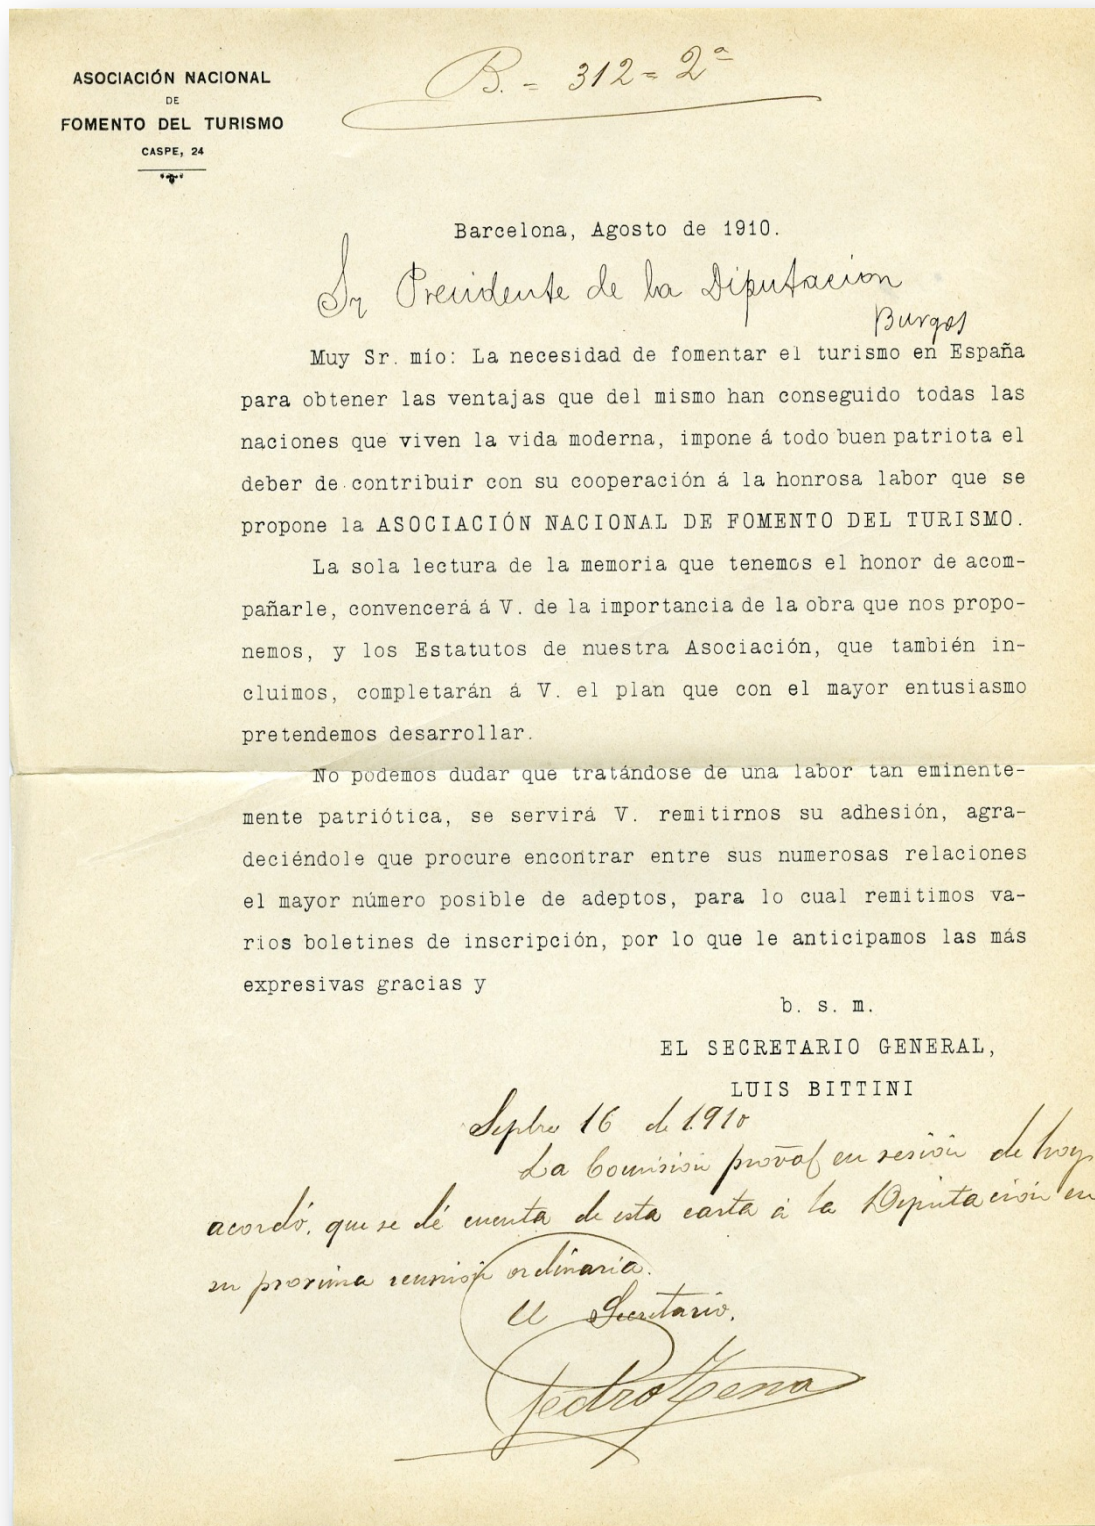 B. = 312 = 2ª
ASOCIACIÓN NACIONAL
DE
FOMENTO DEL TURISMO
CASPE, 24
Barcelona, Agosto de 1910.
Sr Presidente de la Diputacion
Burgos
Muy Sr. mío: La necesidad de fomentar el turismo en España
para obtener las ventajas que del mismo han conseguido todas las
naciones que viven la vida moderna, impone á todo buen patriota el
deber de contribuir con su cooperación á la honrosa labor que se
propone la ASOCIACIÓN NACIONAL DE FOMENTO DEL TURISMO.
La sola lectura de la memoria que tenemos el honor de acom-
pañarle, convencerá á V. de la importancia de la obra que nos propo-
nemos, y los Estatutos de nuestra Asociación, que también in-
cluimos, completarán á V. el plan que con el mayor entusiasmo
pretendemos desarrollar.
No podemos dudar que tratándose de una labor tan eminente-
mente patriótica, se servirá V. remitirnos su adhesión, agra-
deciéndole que procure encontrar entre sus numerosas relaciones
el mayor número posible de adeptos, para lo cual remitimos va-
rios boletines de inscripción, por lo que le anticipamos las más
expresivas gracias y
b. s. m.
EL SECRETARIO GENERAL,
LUIS BITTINI
Sepbre 16 de 1910
La Comisión proval en sesión de hoy
acordó, que se dé cuenta de esta carta á la Diputación en
su proxima reunión ordinaria.
El Secretario.
Pedro Tena